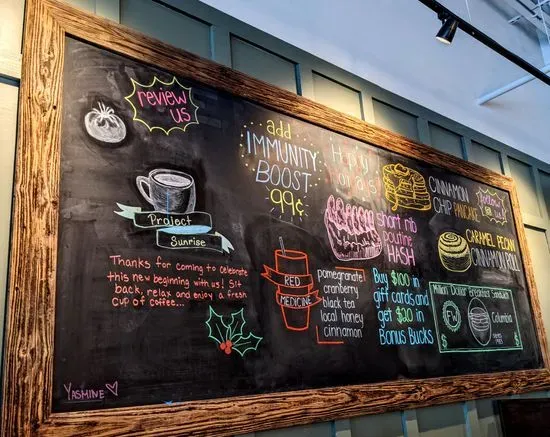 review
us
add
IMMUNITY
BOOST
99¢
Project
Sunrise
Thanks for coming to celebrate
this new beginning with us! Sit
back, relax and enjoy a fresh
cup of coffee...
YASMINE
RED
MEDICINE
pomegranate
cranberry
black tea
local honey
cinnamon
short rib
poutine
HASH
Buy $100 in
gift cards and
get $20 in
Bonus Bucks
CINNAMON
CHIP PANCAKE
CARAMEL PECAN
CINNAMON ROLL
Million Dollar Breakfast Sandwich
FW
Columbia
$
$